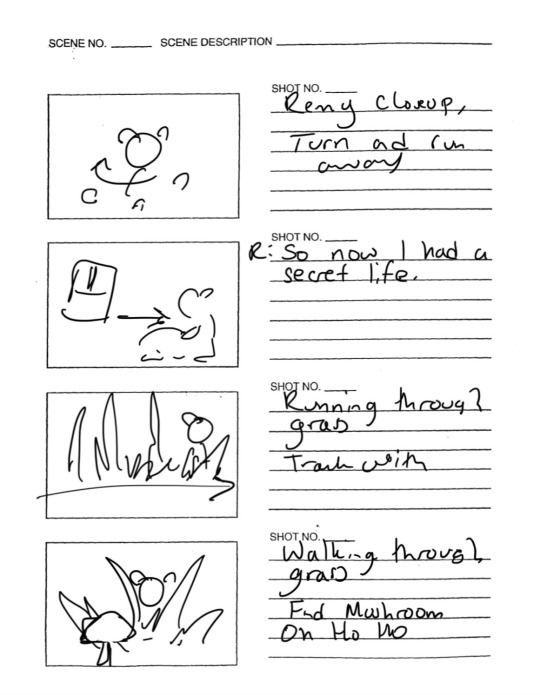 SCENE NO. SCENE DESCRIPTION
SHOT NO.
Remy closeup,
Turn ad run
away
SHOT NO.
R: So now I had a
secret life.
SHOT NO.
Running through
gras
Track with
SHOT NO.
Walking through
gras
Find Mushroom
Oh Ho Ho